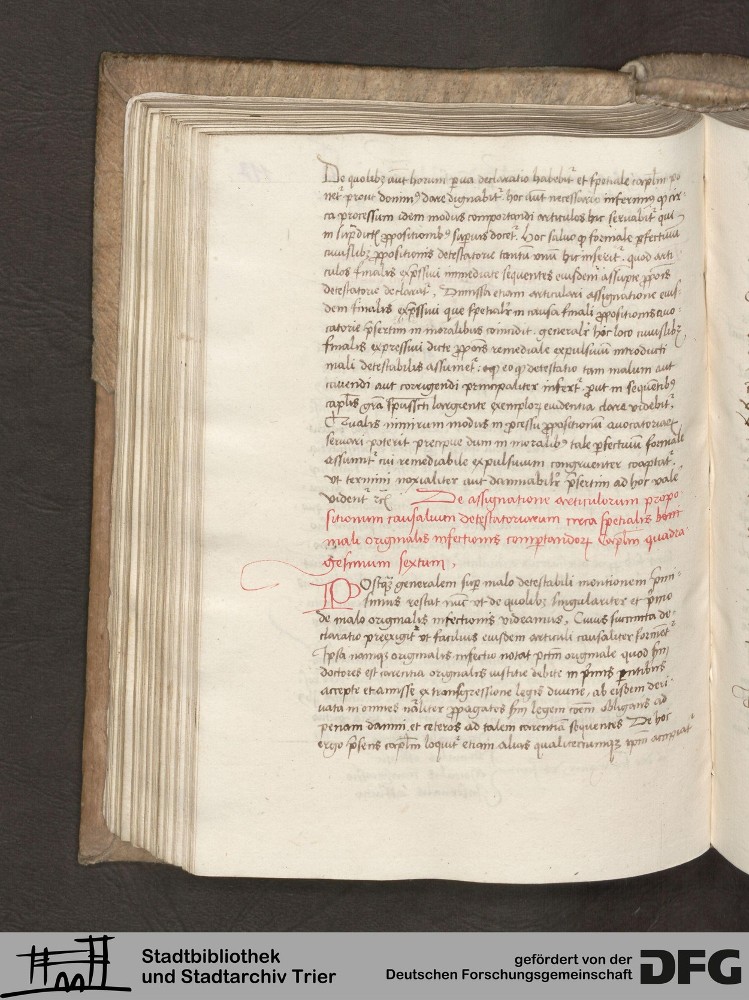 De quolibz aut̄ horum p̱ua declaratio habebit᷑ et sp̄etiale cap̱lm po
net᷑ prout domin⁹ dare dignabit᷑. hoc aut̄ necessario inferim⁹ ꝙ cir
ca processum idem modus comportandi articulos hic seruabit᷑ qui
in sup̱dictꝭ ꝓpositionib⁹ sup̱ius docet᷑. Hoc saluo ꝙ formale p̱fectiuū
cuiuslibz ꝓpositionis detestatorie tantū vnū hic inserit᷑. quod arti
culos finalis exp̄ssiui immediate sequentes eiusdem assupte ꝓpōis
detestatorie declarat᷑. Dimissa etiam articulari assignatione eius
dem finalis exp̄ssiui que spetialr̄ in causa finali ꝓpositionis auo
catorie p̄sertim in moralibus coincidit. generalr̄ hoc loco cuiuslibz
finalis expressiui dicte ꝓpōis remediale expulsiuū introducti
mali detestabilis assumet᷑. eo ꝙ detestatio tam malum aut
cauendi aut corrigendi principaliter infert᷑. ꝓut in sequentib⁹
cap̱lis gr̄a sp̄ussc̄ti largiente exemploꝝ euidentia clare videbit᷑.
Equalis nimirum modus in ꝓcessu ꝓpositionū auocatoriaꝝ
seruari poterit precipue dum in moralib⁹ tale p̱fectiuū formale
assumit᷑ cui remediabile expulsiuum congruenter coaptat᷑.
vt termini noxialiter aut damnabilr̄ p̄sertim ad hoc vale
vident᷑ ⁊c̄ De assignatione articulorum propo
sitionum causalium detestatoriarum circa spetialis
mali originalis infectionis comp̱tandoꝝ Cap̱lm quadra
gesimum sextum.
POstqꝫ generalem sup̱ malo detestabili mentionem p̄mi
simus restat nūc vt de quolibz singulariter et p̱imo
de malo originalis infectionis videamus. Cuius succincta de
claratio preexigit᷑ vt facilius eiusdem articuli causaliter formēt᷑
Ip̄sa namqꝫ originalis infectio notat pctm̄ originale quod scd̄m
doctores est carentia originalis iustitie debite in p̄mis p̱ntibus
accepte et amisse ex transgressione legis diuine. ab eisdem deri
uata in omnes nāliter ꝓpagatos scd̄m legem cōem obligans ad
penam damni. et ceteros ad talem carentiā sequentes De hoc
ergo p̄sens cap̱lm loquit᷑ etiam alias qualitercumqꝫ ip̄m accipiat᷑
Stadtbibliothek
und Stadtarchiv Trier
gefördert von der
Deutschen Forschungsgemeinschaft
DFG